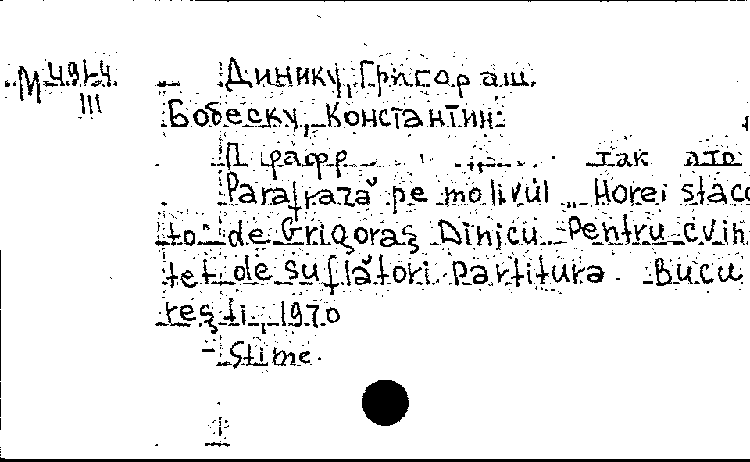 М 491-4
III
Динику, Григораш
Бобеску, Константин
так
Parafrază pe motivul „Horei stacc
to" de Grigoraş Dinicu. Pentru cvin
tet de suflători. Partitura. Bucu
reşti, 1970
- Stime.